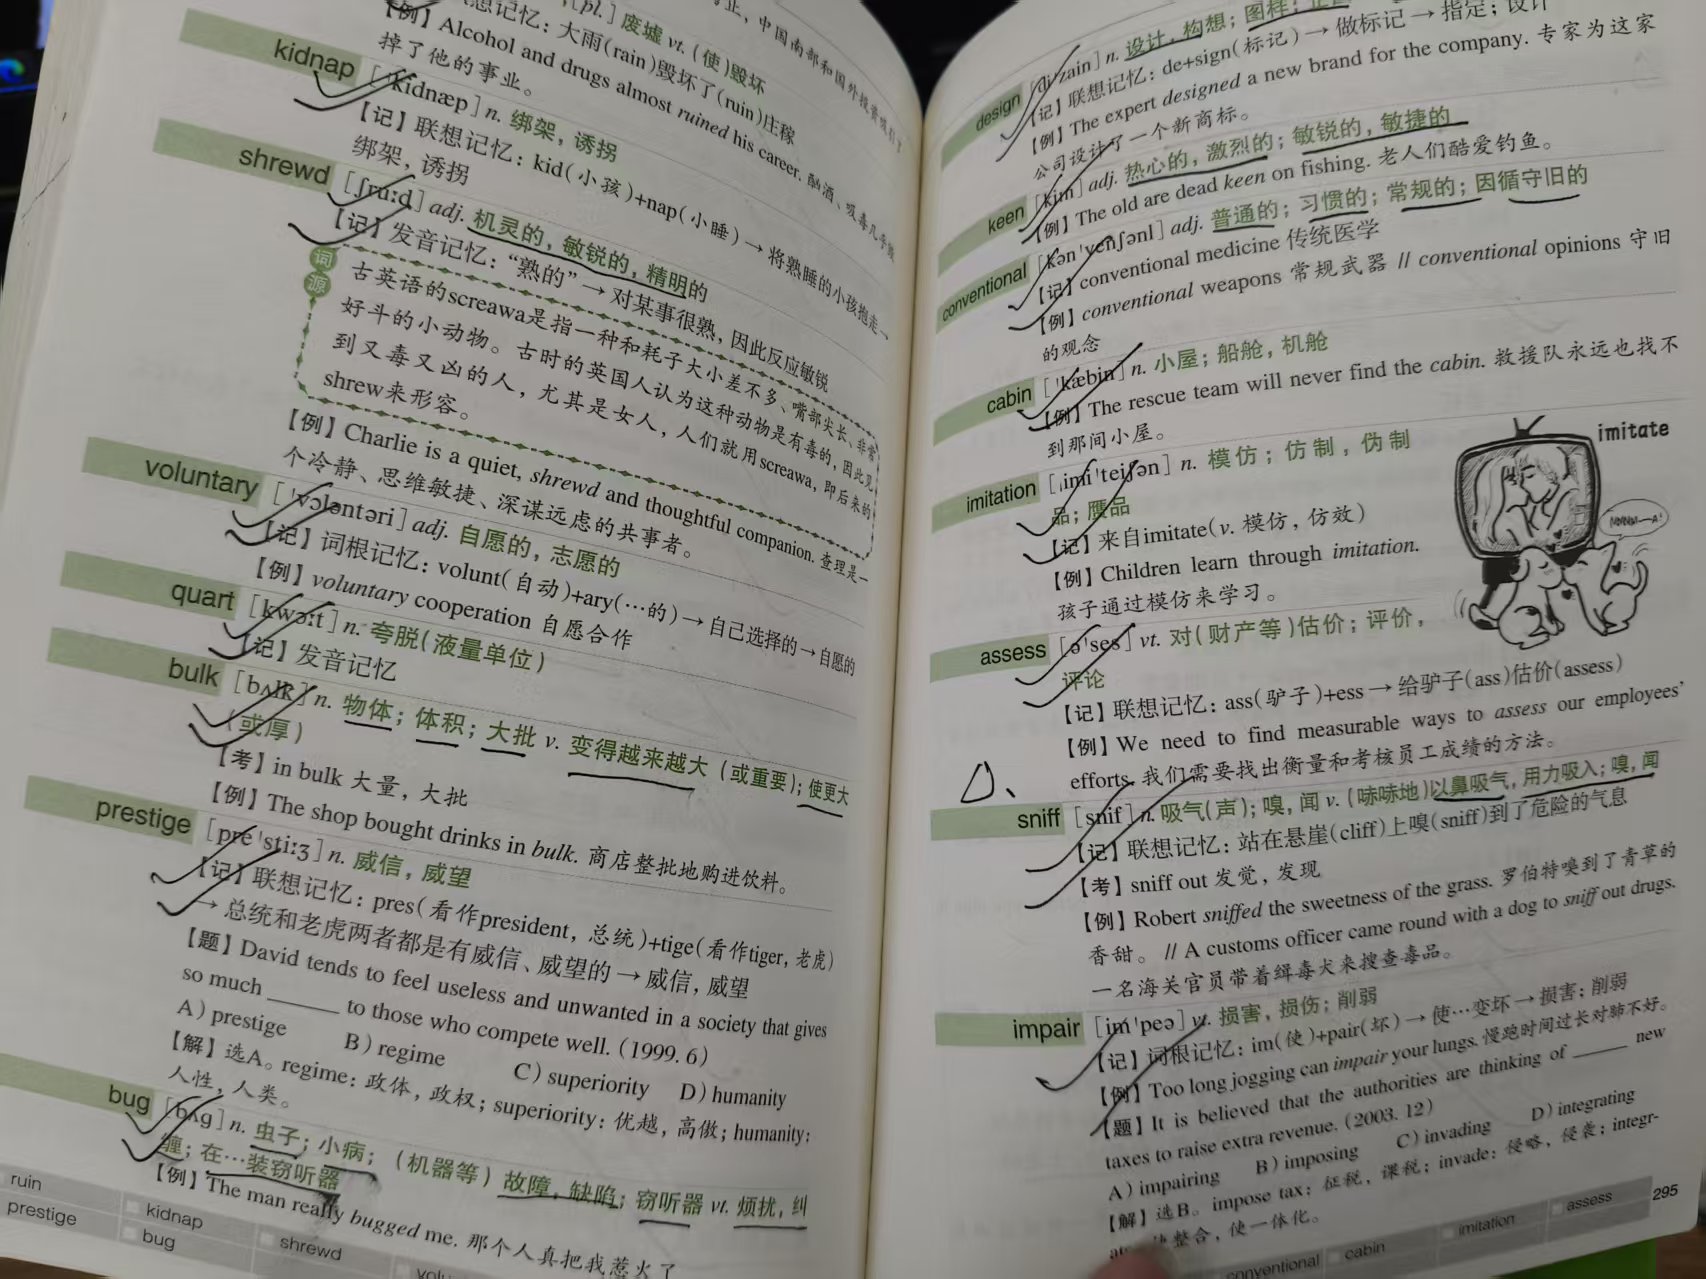 [pl.] 废墟 vt. (使)毁坏
想记忆：大雨(rain)毁坏了(ruin)庄稼
【例】Alcohol and drugs almost ruined his career. 酗酒、吸毒几乎毁
掉了他的事业。
kidnap [ˈkidnæp] n. 绑架，诱拐
【记】联想记忆：kid(小孩)+nap(小睡)→将熟睡的小孩抱走→
绑架，诱拐
shrewd [ʃruːd] adj. 机灵的，敏锐的，精明的
【记】发音记忆：“熟的”→对某事很熟，因此反应敏锐
词源
古英语的screawa是指一种和耗子大小差不多、嘴部尖长、非常
好斗的小动物。古时的英国人认为这种动物是有毒的，因此见
到又毒又凶的人，尤其是女人，人们就用screawa，即后来的
shrew来形容。
【例】Charlie is a quiet, shrewd and thoughtful companion. 查理是一
个冷静、思维敏捷、深谋远虑的共事者。
voluntary [ˈvɔləntəri] adj. 自愿的，志愿的
【记】词根记忆：volunt(自动)+ary(…的)→自己选择的→自愿的
【例】voluntary cooperation 自愿合作
quart [kwɔːt] n. 夸脱(液量单位)
【记】发音记忆
bulk [bʌlk] n. 物体；体积；大批 v. 变得越来越大(或重要)；使更大
(或厚)
【考】in bulk 大量，大批
【例】The shop bought drinks in bulk. 商店整批地购进饮料。
prestige [preˈstiːʒ] n. 威信，威望
【记】联想记忆：pres(看作president，总统)+tige(看作tiger, 老虎)
→总统和老虎两者都是有威信、威望的→威信，威望
【题】David tends to feel useless and unwanted in a society that gives
so much ______ to those who compete well. (1999. 6)
A) prestige B) regime C) superiority D) humanity
【解】选A。regime：政体，政权；superiority：优越，高傲；humanity：
人性，人类。
bug [bʌg] n. 虫子；小病；(机器等)故障，缺陷；窃听器 vt. 烦扰，纠
缠；在…装窃听器
【例】The man really bugged me. 那个人真把我惹火了
ruin
kidnap
shrewd
prestige
bug
design [diˈzain] n. 设计，构想；图样；
【记】联想记忆：de+sign(标记)→做标记→指定；设计
【例】The expert designed a new brand for the company. 专家为这家
公司设计了一个新商标。
keen [kiːn] adj. 热心的，激烈的；敏锐的，敏捷的
【例】The old are dead keen on fishing. 老人们酷爱钓鱼。
conventional [kənˈvenʃənl] adj. 普通的；习惯的；常规的；因循守旧的
【记】conventional medicine 传统医学
【例】conventional weapons 常规武器 // conventional opinions 守旧
的观念
cabin [ˈkæbin] n. 小屋；船舱，机舱
【例】The rescue team will never find the cabin. 救援队永远也找不
到那间小屋。
imitation [ˌimiˈteiʃən] n. 模仿；仿制，伪制
品；赝品
【记】来自imitate(v. 模仿，仿效)
【例】Children learn through imitation.
孩子通过模仿来学习。
imitate
assess [əˈses] vt. 对(财产等)估价；评价，
评论
【记】联想记忆：ass(驴子)+ess→给驴子(ass)估价(assess)
【例】We need to find measurable ways to assess our employees'
efforts. 我们需要找出衡量和考核员工成绩的方法。
sniff [snif] n. 吸气(声)；嗅，闻 v. (哧哧地)以鼻吸气，用力吸入；嗅，闻
【记】联想记忆：站在悬崖(cliff)上嗅(sniff)到了危险的气息
【考】sniff out 发觉，发现
【例】Robert sniffed the sweetness of the grass. 罗伯特嗅到了青草的
香甜。 // A customs officer came round with a dog to sniff out drugs.
一名海关官员带着缉毒犬来搜查毒品。
impair [imˈpeə] vt. 损害，损伤；削弱
【记】词根记忆：im(使)+pair(坏)→使…变坏→损害；削弱
【例】Too long jogging can impair your lungs. 慢跑时间过长对肺不好。
【题】It is believed that the authorities are thinking of ______ new
taxes to raise extra revenue. (2003. 12)
A) impairing B) imposing C) invading D) integrating
【解】选B。impose tax：征税，课税；invade：侵略，侵袭；integr-
整合，使一体化。
conventional
cabin
imitation
assess
295